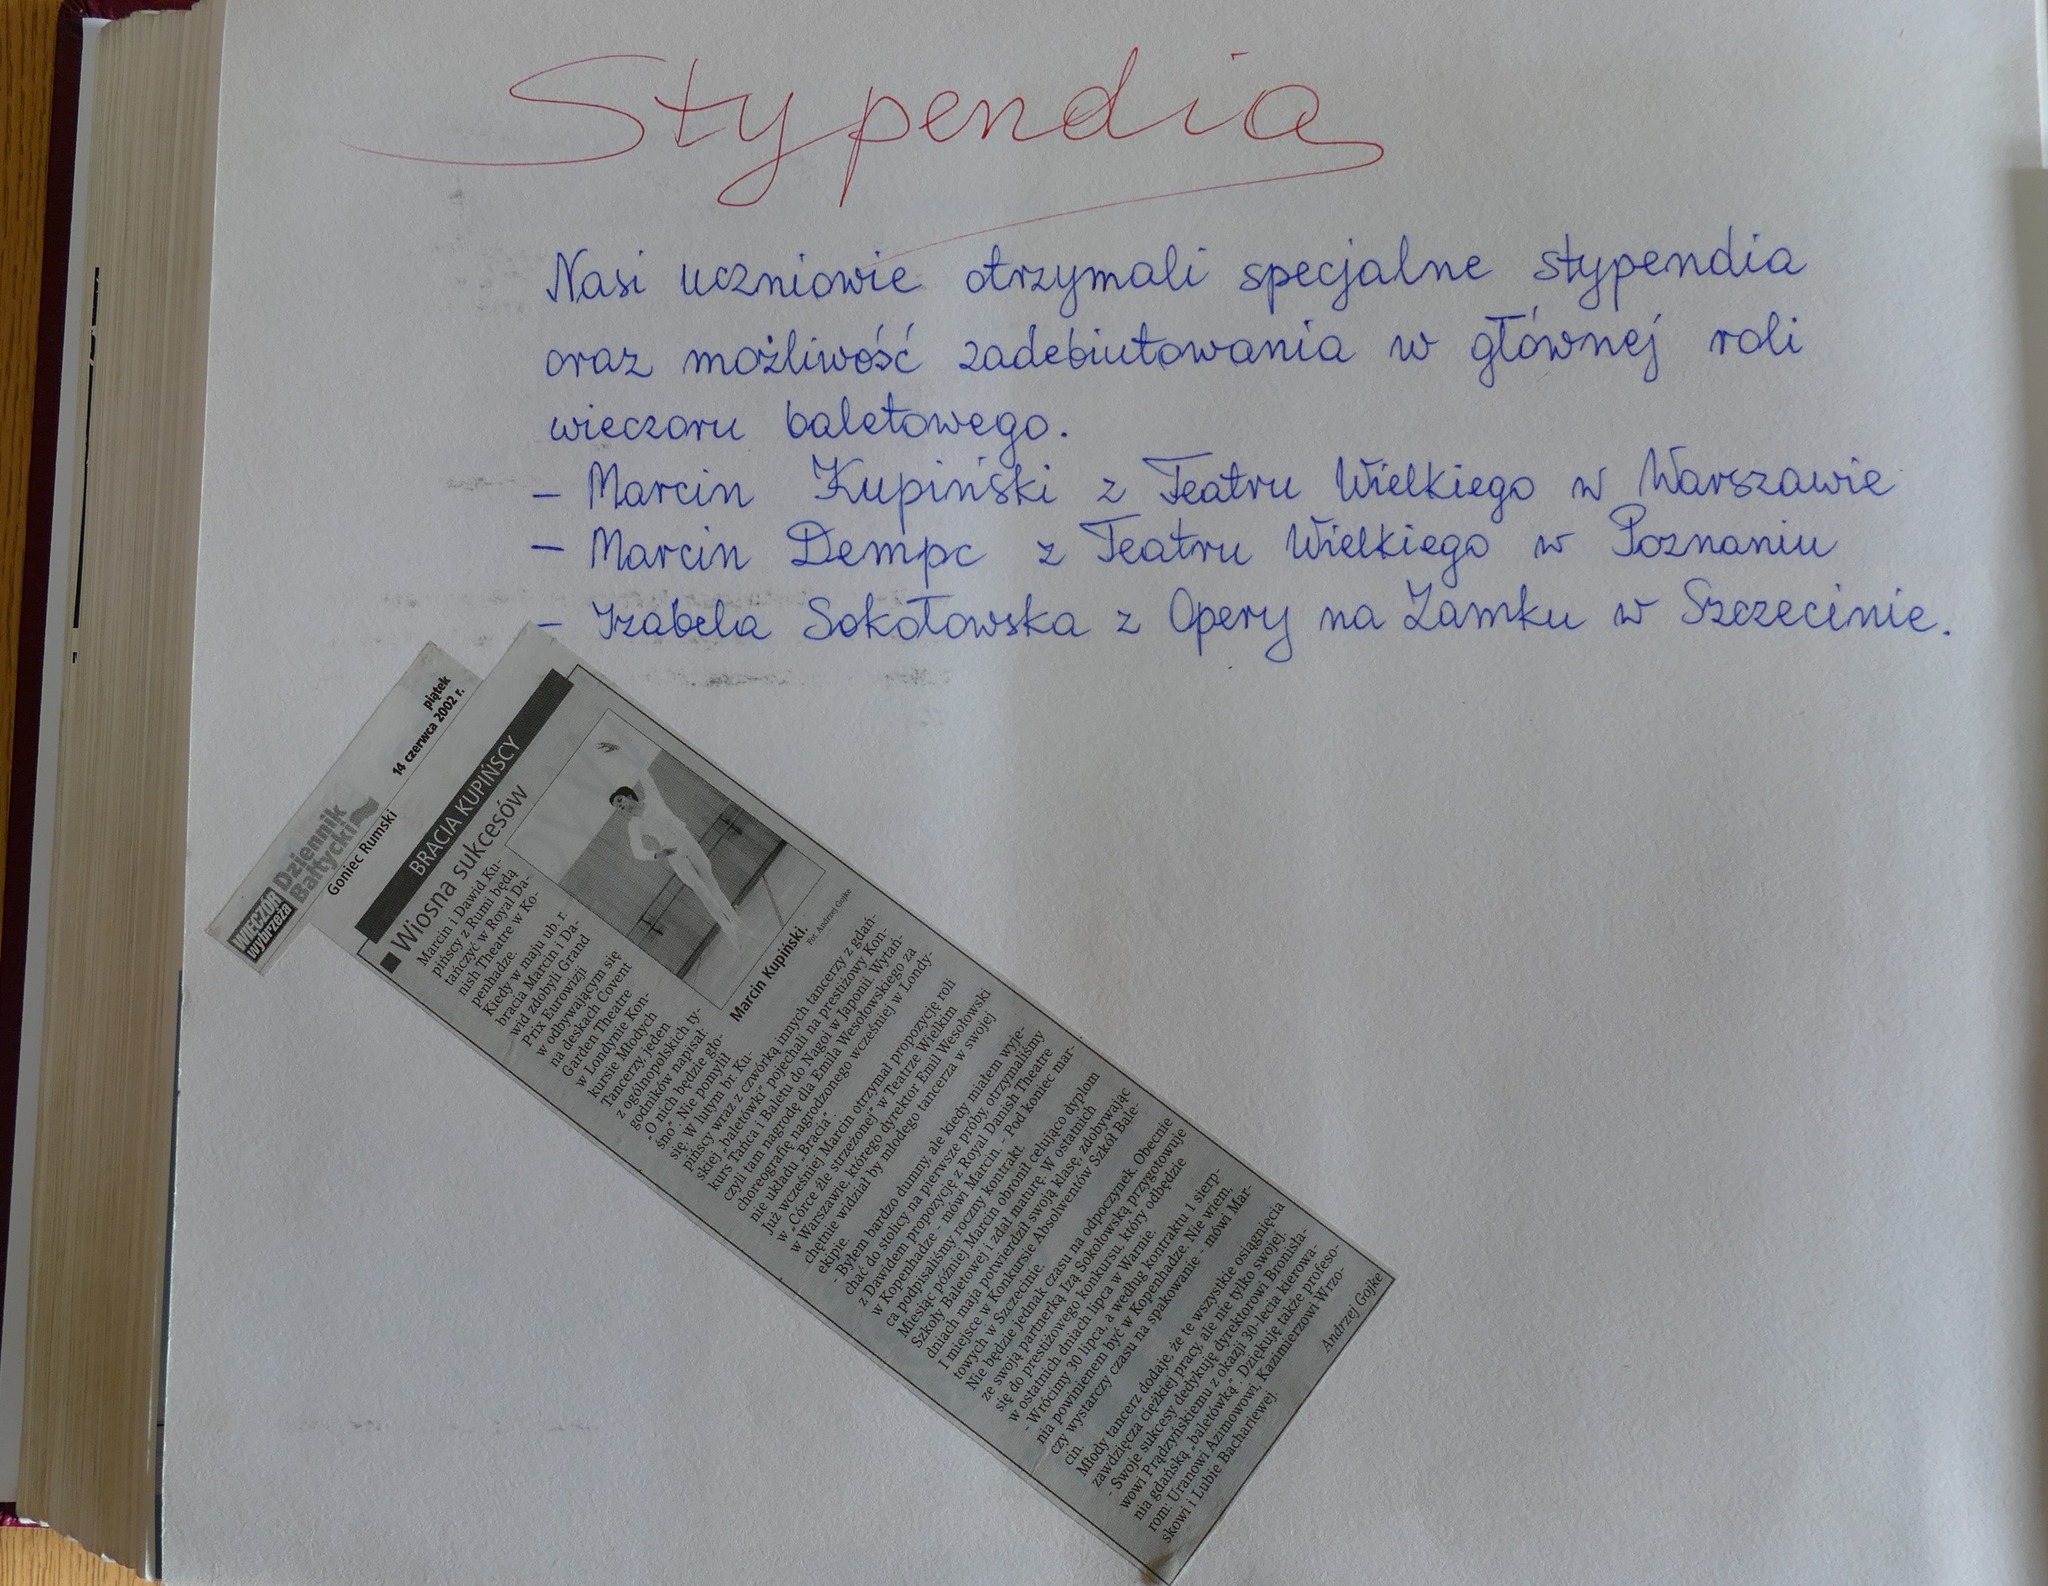 Stypendia
Nasi uczniowie otrzymali specjalne stypendia
oraz możliwość zadebiutowania w głównej roli
wieczoru baletowego.
- Marcin Kupiński z Teatru Wielkiego w Warszawie
- Marcin Dempc z Teatru Wielkiego w Poznaniu
- Izabela Sokołowska z Opery na Zamku w Szczecinie.
WIECZÓR
Wybrzeża
Dziennik
Bałtycki
Goniec Rumski
piątek
14 czerwca 2002 r.
BRACIA KUPIŃSCY
Wiosna sukcesów
Marcin i Dawid Ku-
pińscy z Rumi będą
tańczyć w Royal Da-
nish Theatre w Ko-
penhadze.
Kiedy w maju ub. r.
bracia Marcin i Da-
wid zdobyli Grand
Prix Eurowizji
w odbywającym się
na deskach Covent
Garden Theatre
w Londynie Kon-
kursie Młodych
Tancerzy, jeden
z ogólnopolskich ty-
godników napisał:
„O nich będzie gło-
śno". Nie pomylił
się. W lutym br. Ku-
pińscy wraz z czwórką innych tancerzy z gdań-
skiej „baletówki" pojechali na prestiżowy Kon-
kurs Tańca i Baletu do Nagoi w Japonii. Wytań-
czyli tam nagrodę dla Emila Wesołowskiego za
choreografię nagrodzonego wcześniej w Londy-
nie układu „Bracia".
Już wcześniej Marcin otrzymał propozycję roli
w „Córce źle strzeżonej" w Teatrze Wielkim
w Warszawie, którego dyrektor Emil Wesołowski
chętnie widział by młodego tancerza w swojej
ekipie.
- Byłem bardzo dumny, ale kiedy miałem wyje-
chać do stolicy na pierwsze próby, otrzymaliśmy
z Dawidem propozycję z Royal Danish Theatre
w Kopenhadze - mówi Marcin. - Pod koniec mar-
ca podpisaliśmy roczny kontrakt.
Miesiąc później Marcin obronił celująco dyplom
Szkoły Baletowej i zdał maturę. W ostatnich
dniach maja potwierdził swoją klasę, zdobywając
I miejsce w Konkursie Absolwentów Szkół Bale-
towych w Szczecinie.
Nie będzie jednak czasu na odpoczynek. Obecnie
ze swoją partnerką Izą Sokołowską przygotowuje
się do prestiżowego konkursu, który odbędzie
w ostatnich dniach lipca w Warnie.
- Wrócimy 30 lipca, a według kontraktu 1 sierp-
nia powinienem być w Kopenhadze. Nie wiem,
czy wystarczy czasu na spakowanie - mówi Mar-
cin.
Młody tancerz dodaje, że te wszystkie osiągnięcia
zawdzięcza ciężkiej pracy, ale nie tylko swojej.
- Swoje sukcesy dedykuję dyrektorowi Bronisła-
wowi Prądzyńskiemu z okazji 30-lecia kierowa-
nia gdańską „baletówką". Dziękuję także profeso-
rom: Uranowi Azimowowi, Kazimierzowi Wrzo-
skowi i Lubie Bachariewej.
Andrzej Gojke
Marcin Kupiński.
Fot. Andrzej Gojke